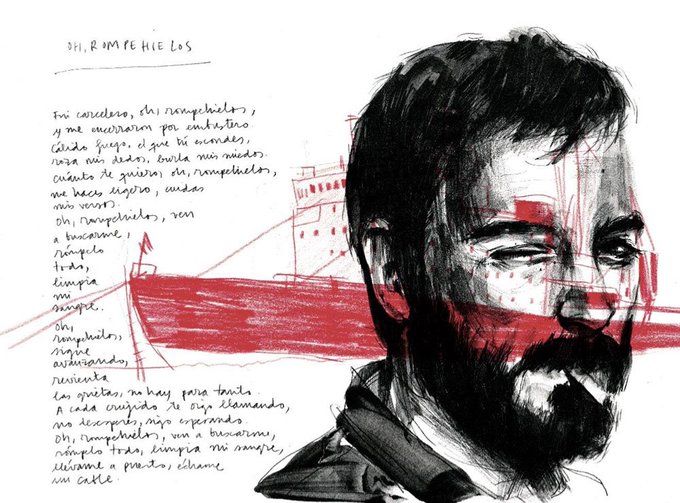 OH, ROMPEHIELOS
Fui carcelero, oh, rompehielos,
y me encerraron por embustero
Cálido fuego, el que tú escondes,
roza mis dedos, burla mis miedos.
cuánto te quiero, oh, rompehielos,
me haces ligero, cuidas
mis versos.
Oh, rompehielos, ven
a buscarme,
rómpelo
todo,
limpia
mi
sangre.
Oh,
rompehielos,
sigue
avanzando,
revienta
las grietas, no hay para tanto.
A cada crujido te oigo llamando,
no desesperes, sigo esperando.
Oh, rompehielos, ven a buscarme,
rómpelo todo, limpia mi sangre,
llévame a puerto, échame
un cable.